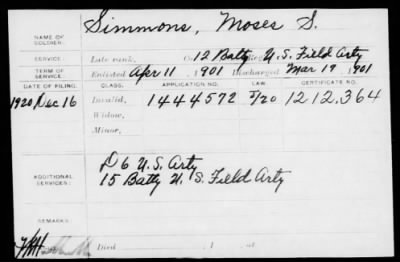 Simmons, Moses S.
NAME OF SOLDIER:
SERVICE: Late rank, Co. 12 Batty Reg't U.S. Field Arty
TERM OF SERVICE: Enlisted Apr 11, 1901 Discharged Mar 19, 1901
DATE OF FILING. CLASS. APPLICATION NO. LAW. CERTIFICATE NO.
1920 Dec 16 Invalid, 1444572 5/20 1212,364
Widow,
Minor,
ADDITIONAL SERVICES: D 6 U.S. Arty
15 Batty U.S. Field Arty
REMARKS:
Died , 1 , at